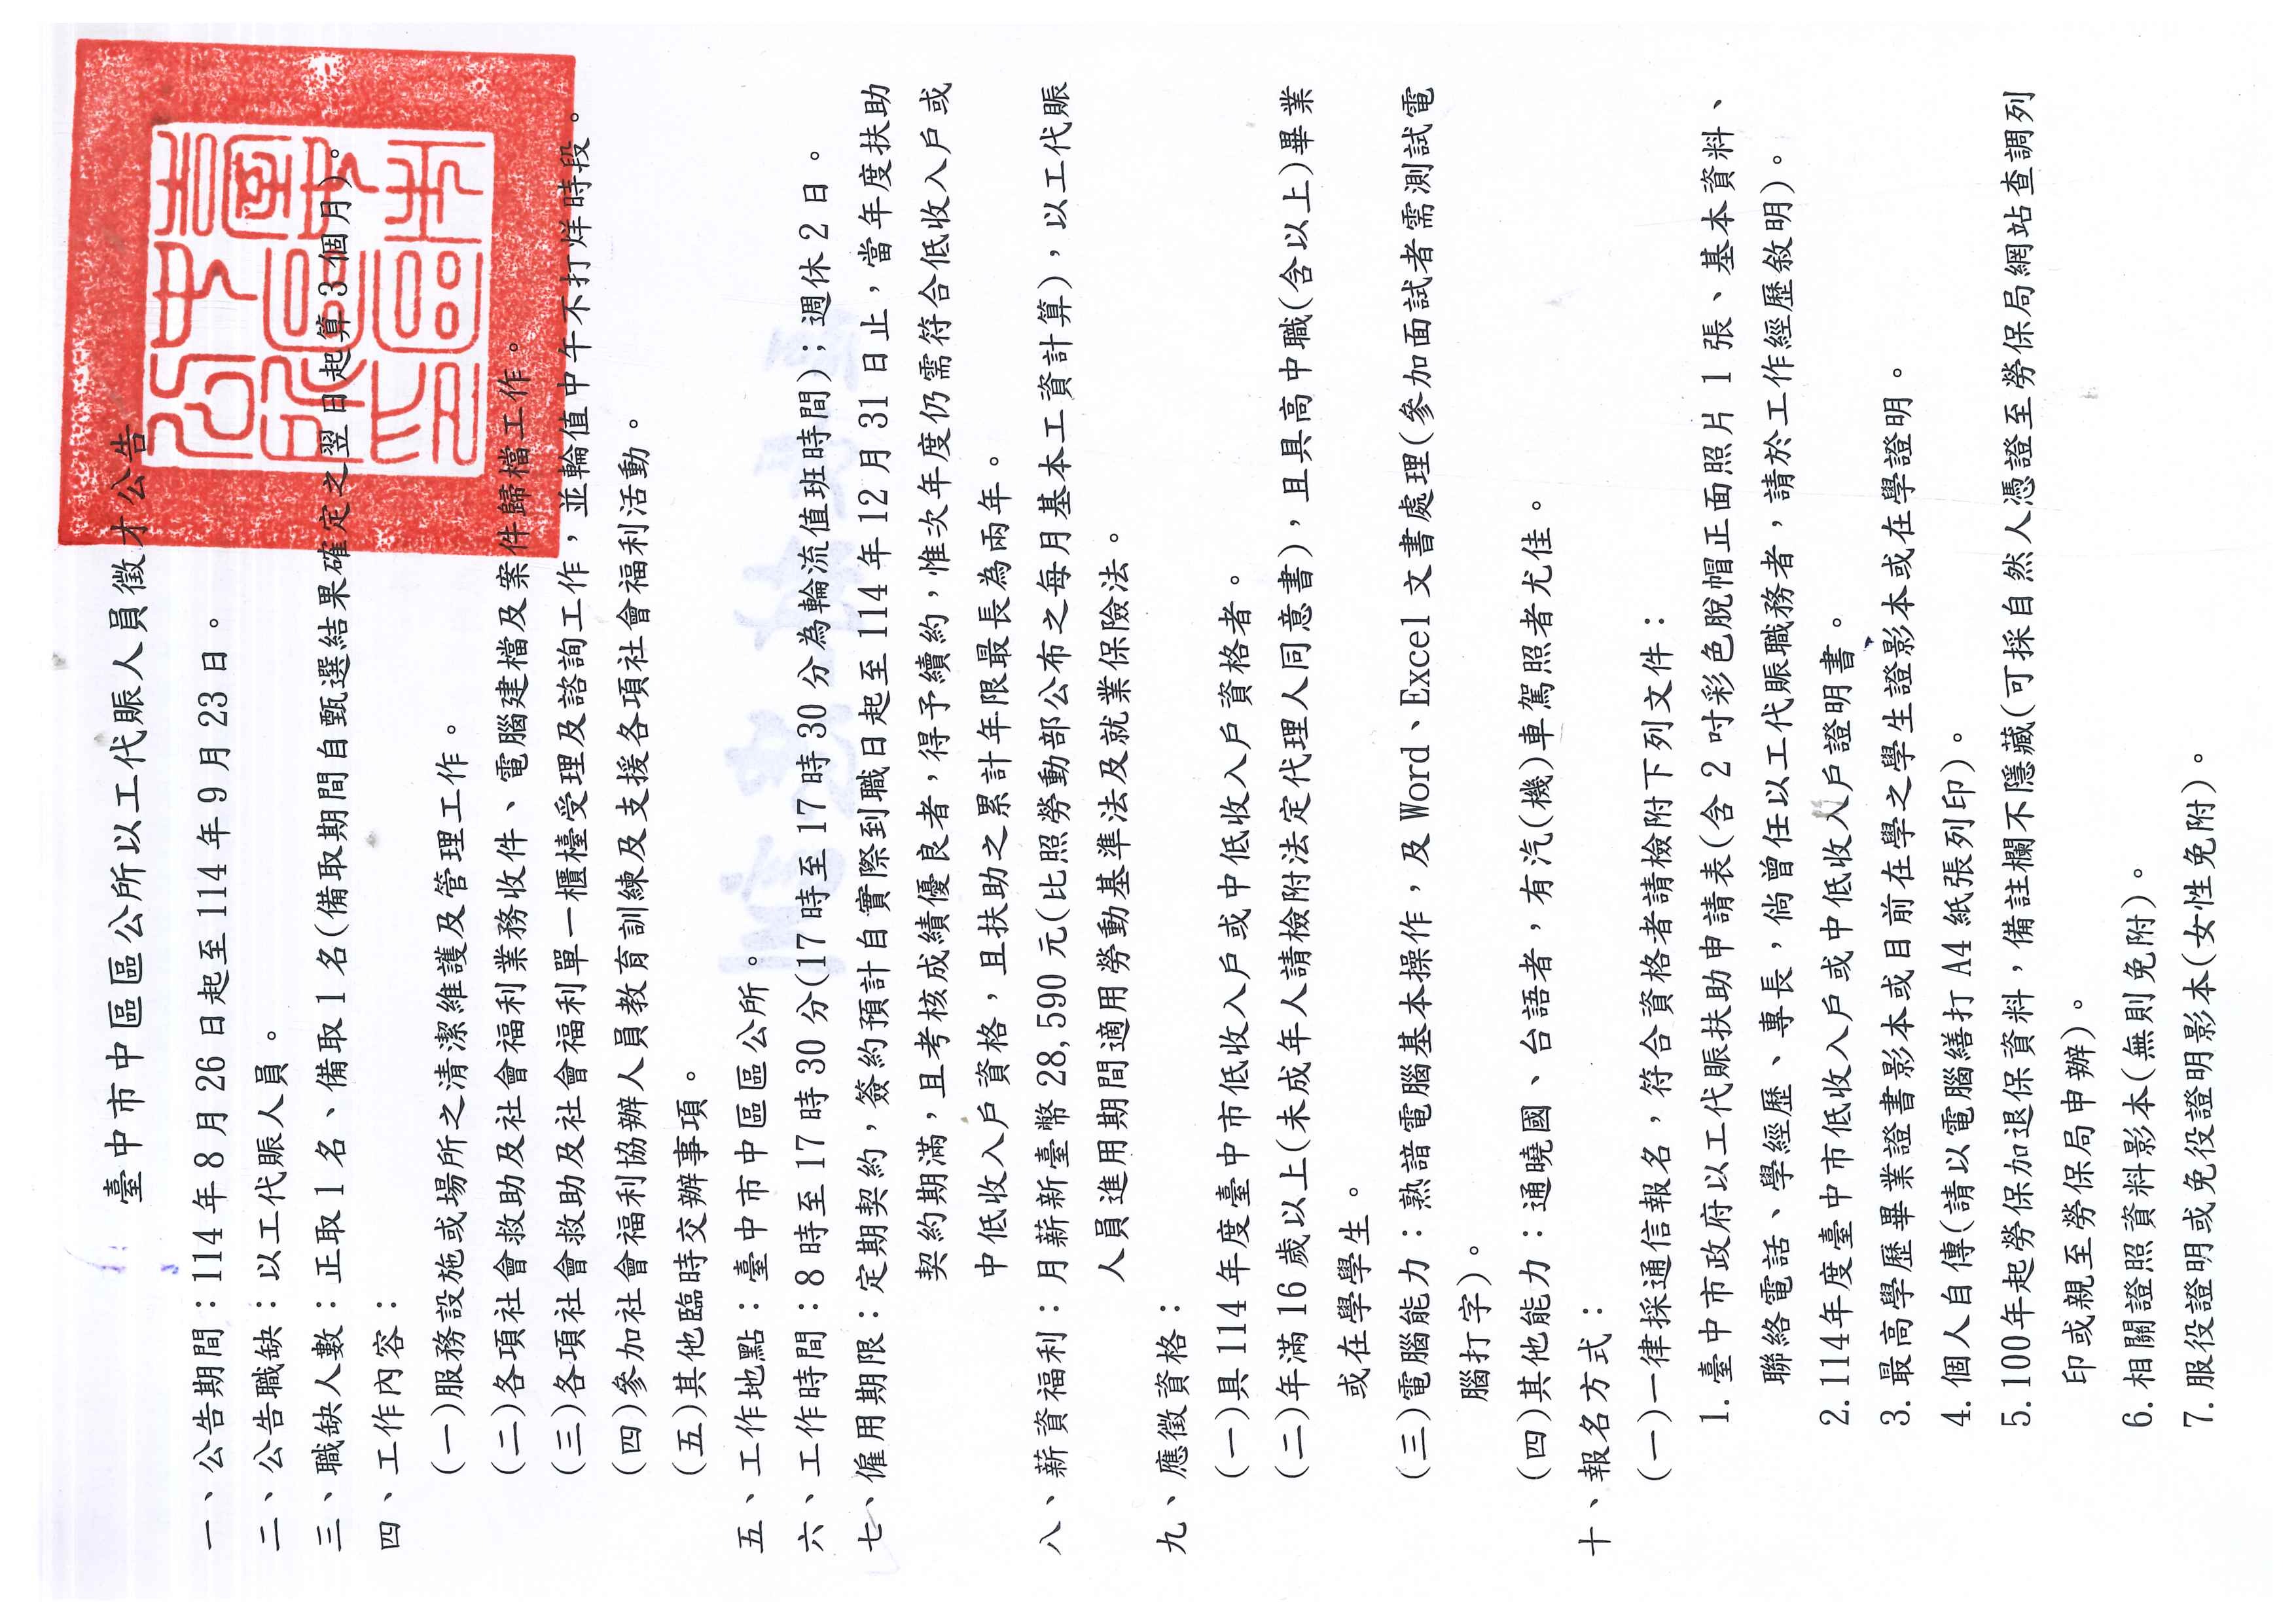 臺中市中區區公所以工代賑人員徵才公告
一、公告期間：114 年 8 月 26 日起至 114 年 9 月 23 日。
二、公告職缺：以工代賑人員。
三、職缺人數：正取 1 名、備取 1 名(備取期間自甄選結果確定之翌日起算 3 個月)。
四、工作內容：
(一)服務設施或場所之清潔維護及管理工作。
(二)各項社會救助及社會福利業務收件、電腦建檔及案件歸檔工作。
(三)各項社會救助及社會福利單一櫃檯受理及諮詢工作，並輪值中午不打烊時段。
(四)參加社會福利協辦人員教育訓練及支援各項社會福利活動。
(五)其他臨時交辦事項。
五、工作地點：臺中市中區區公所。
六、工作時間：8 時至 17 時 30 分(17 時至 17 時 30 分為輪流值班時間)；週休 2 日。
七、僱用期限：定期契約，簽約預計自實際到職日起至 114 年 12 月 31 日止，當年度扶助
契約期滿，且考核成績優良者，得予續約，惟次年度仍需符合低收入戶或
中低收入戶資格，且扶助之累計年限最長為兩年。
八、薪資福利：月薪新臺幣 28,590 元(比照勞動部公布之每月基本工資計算)，以工代賑
人員進用期間適用勞動基準法及就業保險法。
九、應徵資格：
(一)具 114 年度臺中市低收入戶或中低收入戶資格者。
(二)年滿 16 歲以上(未成年人請檢附法定代理人同意書)，且具高中職(含以上)畢業
或在學學生。
(三)電腦能力：熟諳電腦基本操作，及 Word、Excel 文書處理(參加面試者需測試電
腦打字)。
(四)其他能力：通曉國、台語者，有汽(機)車駕照者尤佳。
十、報名方式：
(一)一律採通信報名，符合資格者請檢附下列文件：
1. 臺中市政府以工代賑扶助申請表(含 2 吋彩色脫帽正面照片 1 張、基本資料、
聯絡電話、學經歷、專長，倘曾任以工代賑職務者，請於工作經歷敘明)。
2. 114年度臺中市低收入戶或中低收入戶證明書。
3. 最高學歷畢業證書影本或目前在學之學生證影本或在學證明。
4. 個人自傳(請以電腦繕打 A4 紙張列印)。
5. 100年起勞保加退保資料，備註欄不隱藏(可採自然人憑證至勞保局網站查調列
印或親至勞保局申辦)。
6. 相關證照資料影本(無則免附)。
7. 服役證明或免役證明影本(女性免附)。